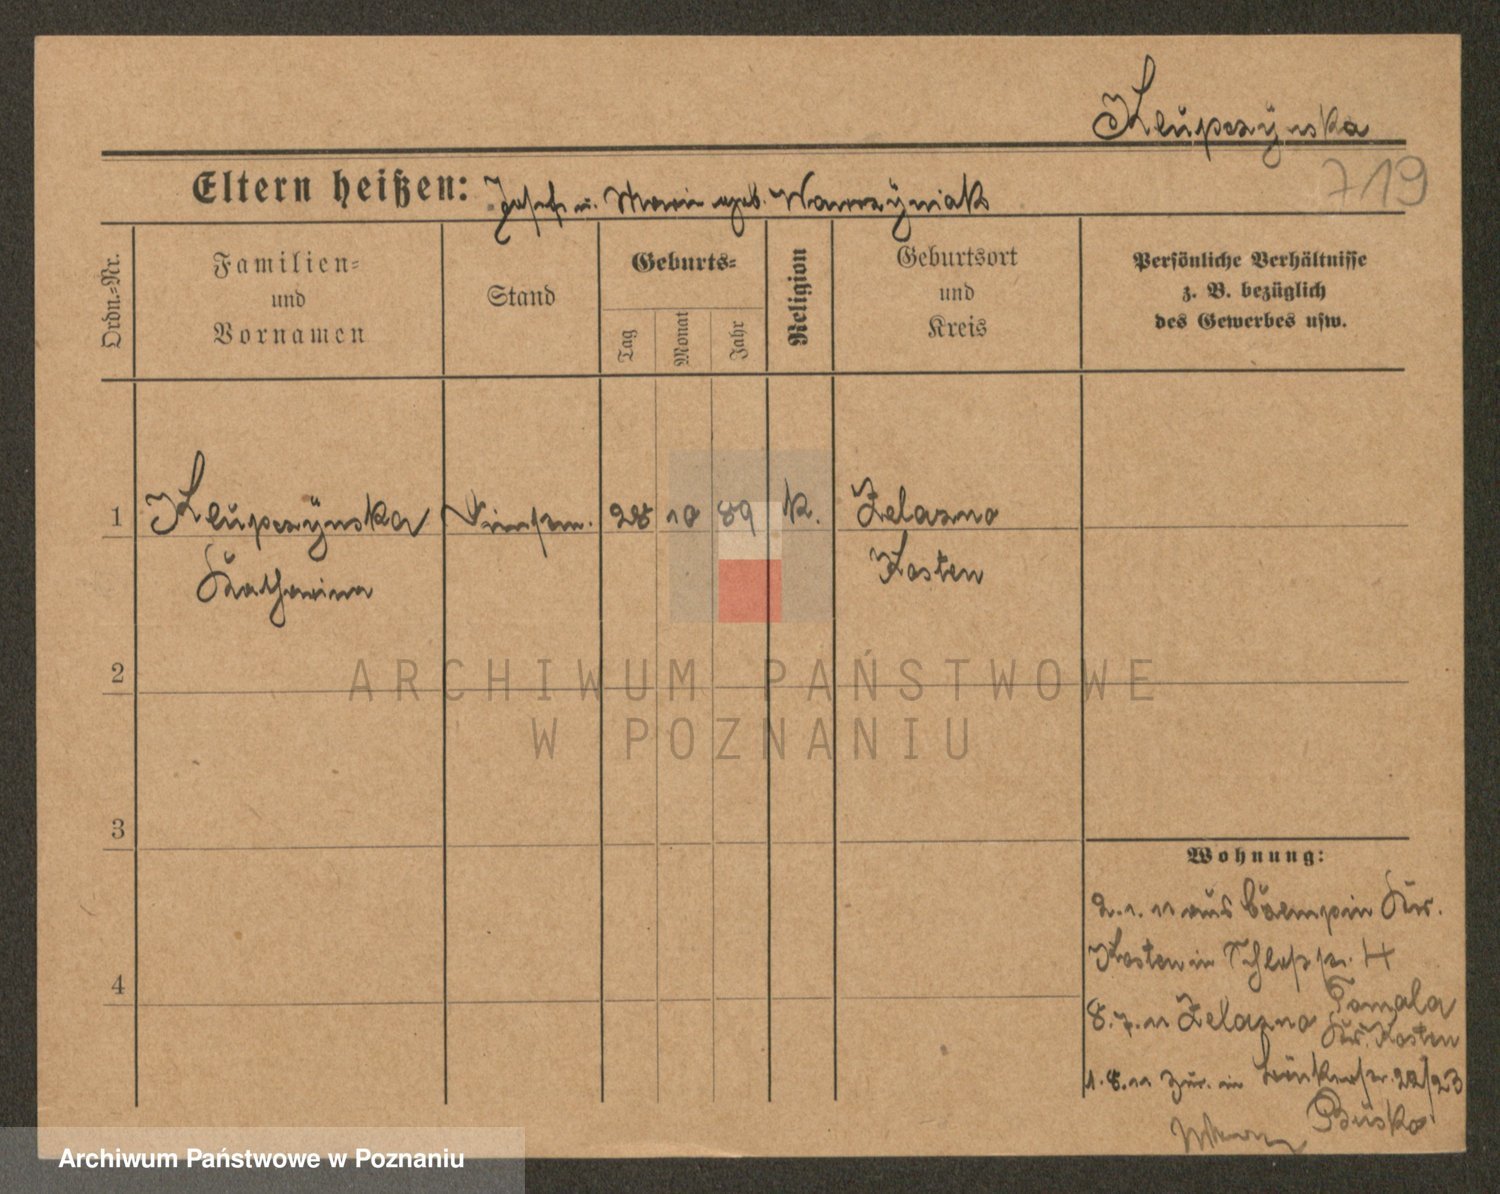 Kłupczynska
719
Eltern heißen: Josef u. Marie geb. Wawrzÿniak
Ordn.-Nr.
Familien- und Vornamen
Stand
Geburts-
Tag
Monat
Jahr
Religion
Geburtsort und Kreis
Persönliche Verhältnisse z. B. bezüglich des Gewerbes usw.
1 28 10 89 k. Zelazno
Katharina Kosten
2
ARCHIWUM PAŃSTWOWE
W POZNANIU
3
Wohnung:
2.1.11 aus Kr.
Kosten in 4
4
8.7.11 Zelazno
Kr. Kosten
1.8.11 zur. in 22/23
Archiwum Państwowe w Poznaniu